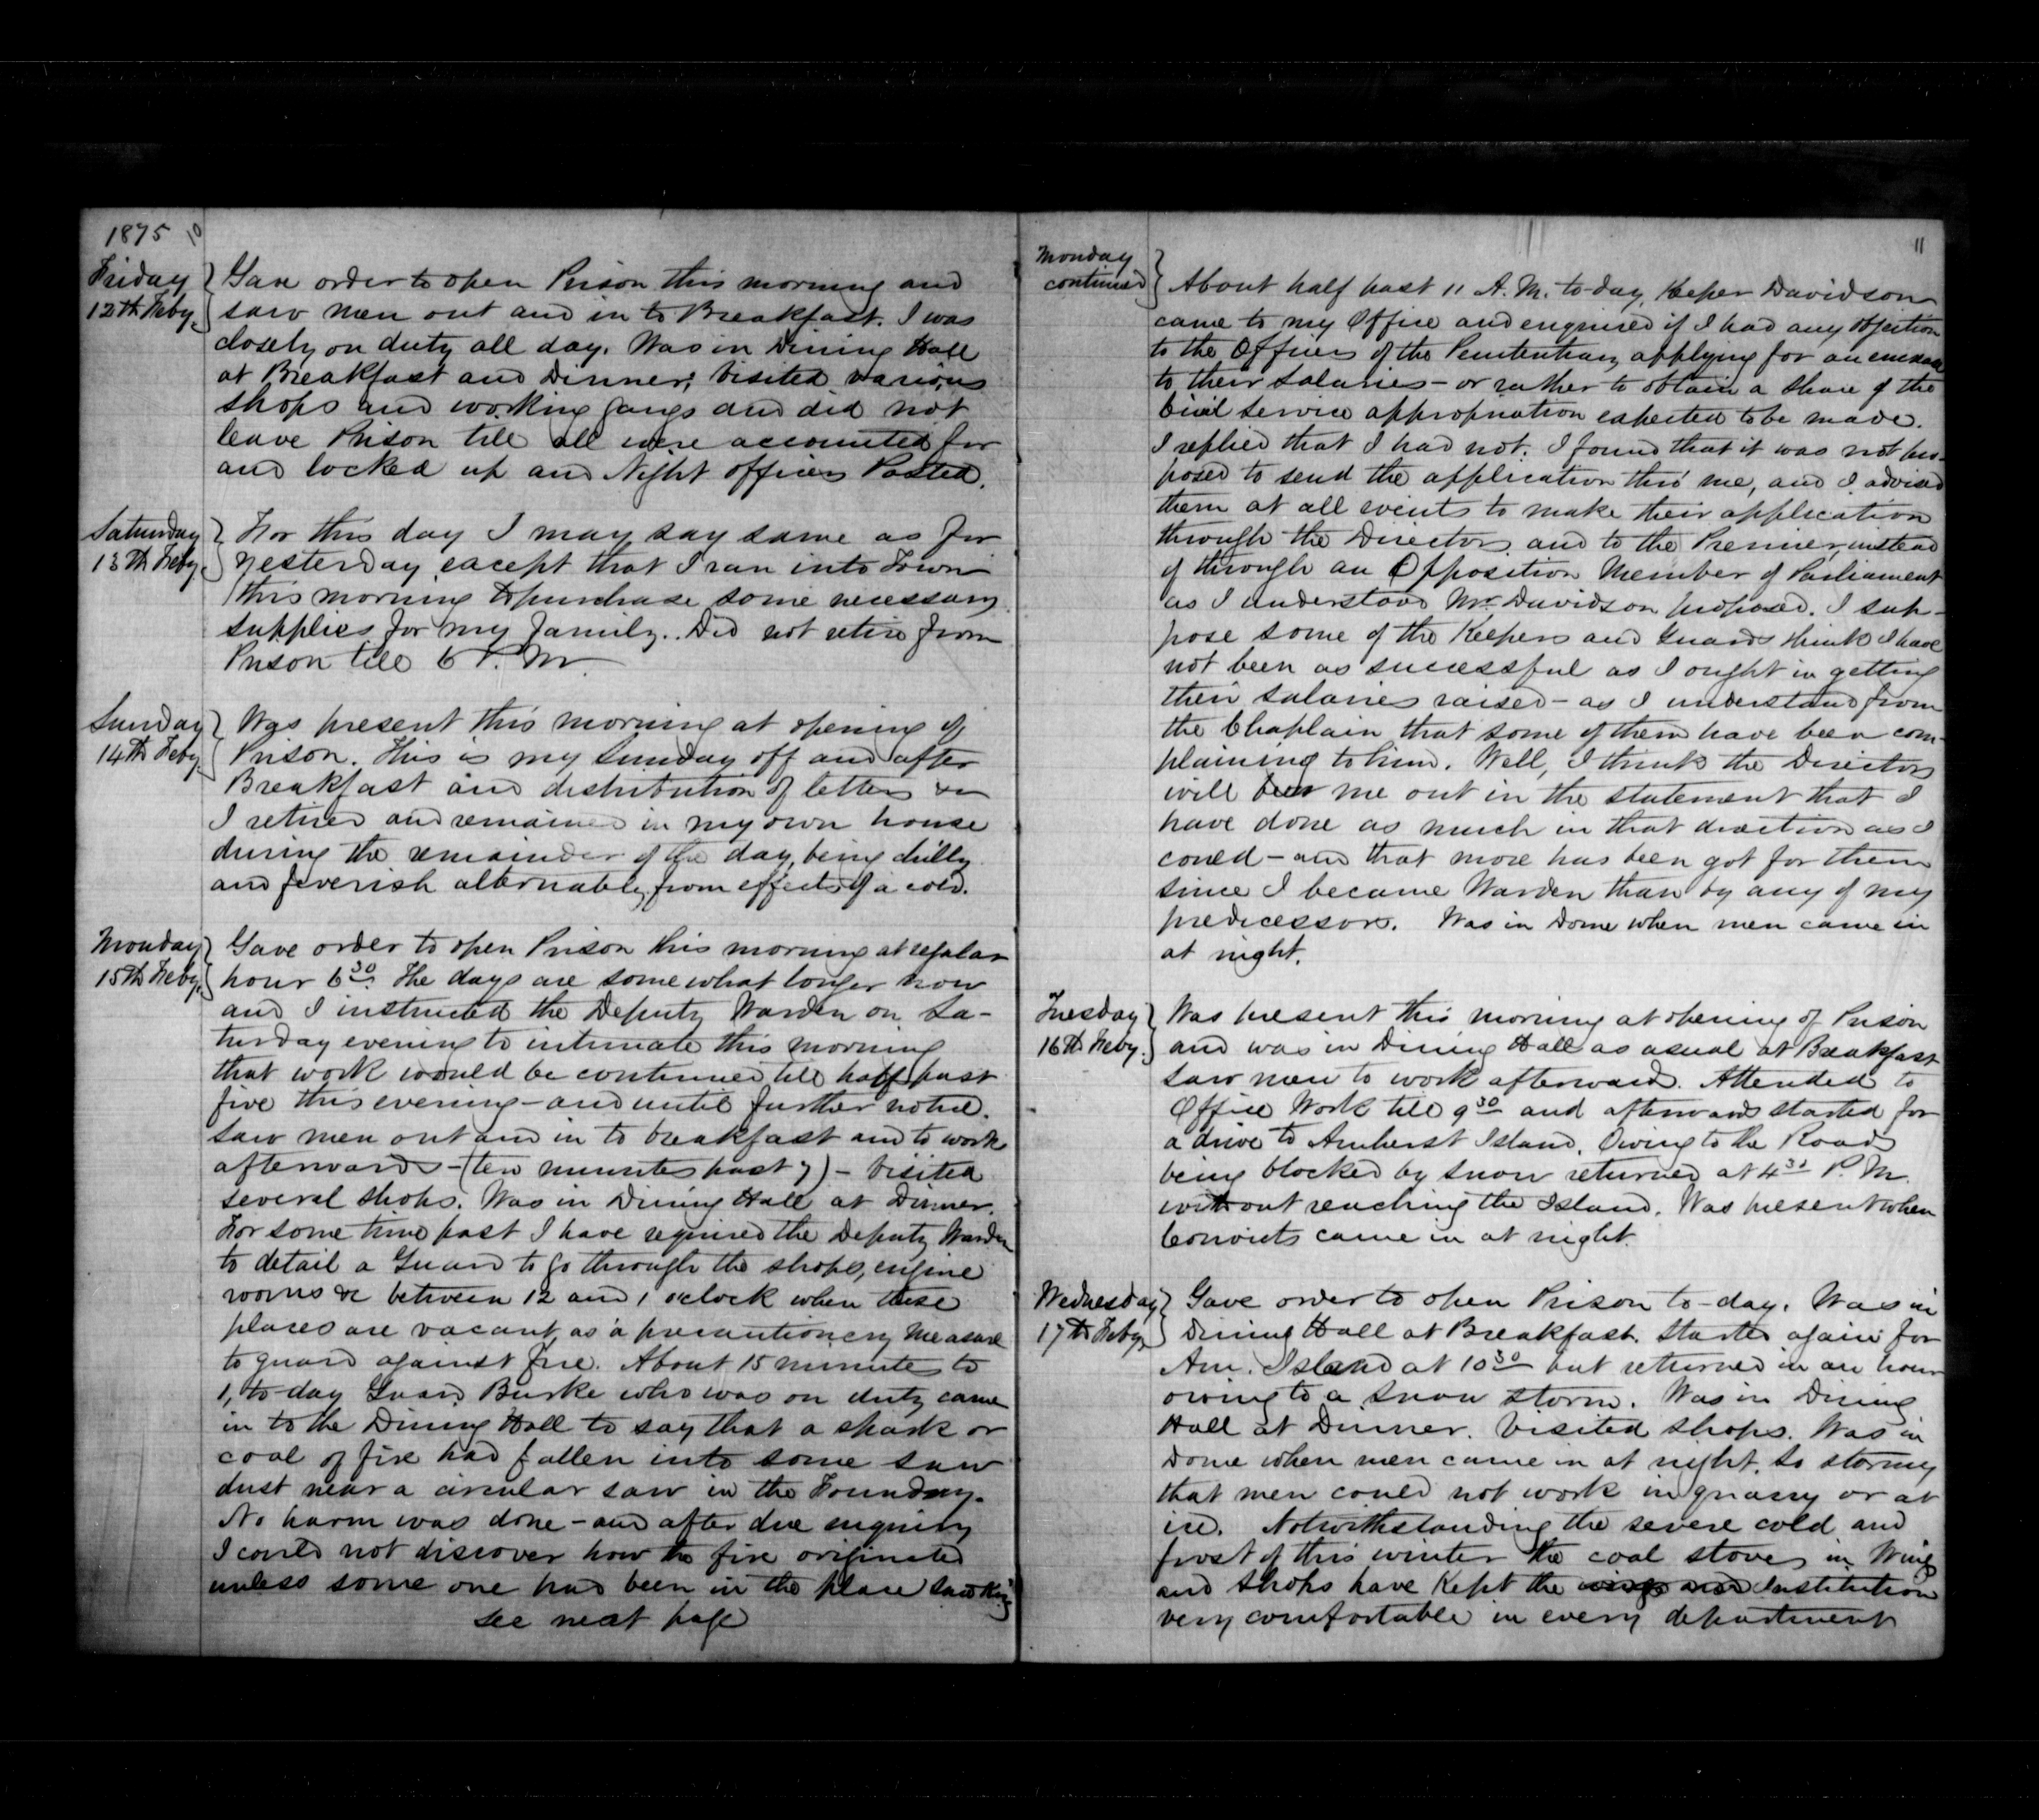 1875 10
Friday
12th Feby.
Gave order to open Prison this morning and
saw men out and in to Breakfast. I was
closely on duty all day. Was in Dining Hall
at Breakfast and Dinner; Visited various
shops and working gangs and did not
leave Prison till all were accounted for
and locked up and Night officers Posted.
Saturday
13th Feby.
For this day I may say same as for
yesterday except that I ran into Town
this morning to purchase some necessary
supplies for my family. Did not retire from
Prison till 6 P.M.
Sunday
14th Feby.
Was present this morning at opening of
Prison. This is my Sunday off and after
Breakfast and distribution of letters &c
I retired and remained in my own house
during the remainder of the day, being chilly
and feverish alternately from effects of a cold.
Monday
15th Feby.
Gave order to open Prison this morning at regular
hour 6 30. The days are somewhat longer now
and I instructed the Deputy Warden on Sa-
turday evening to intimate this morning
that work would be continued till half past
five this evening - and until further notice.
Saw men out and in to breakfast and to work
afterwards - (ten minutes past 7) - Visited
several shops. Was in Dining Hall at Dinner.
For some time past I have required the Deputy Warden
to detail a Guard to go through the shops, engine
rooms &c between 12 and 1 o'clock when these
places are vacant, as a precautionery measure
to guard against fire. About 15 minutes to
1, to-day Guard Burke who was on duty came
in to the Dining Hall to say that a spark or
coal of fire had fallen into some saw
dust near a circular saw in the Foundry.
No harm was done - and after due enquiry
I could not discover how the fire originated
unless some one had been in the place smoking
see next page
11
Monday
continued
About half past 11 A.M. to-day, Keeper Davidson
came to my Office and enquired if I had any objection
to the Officers of the Penitentiary applying for an increase
to their Salaries - or rather to obtain a share of the
Civil Service appropriation expected to be made.
I replied that I had not. I found that it was not pur-
posed to send the application thro' me, and I advised
them at all events to make their application
through the Directors and to the Premier, instead
of through an Opposition Member of Parliament
as I understood Mr. Davidson proposed. I sup-
pose some of the Keepers and Guards think I have
not been as successful as I ought in getting
their salaries raised - as I understand from
the Chaplain that some of them have been com-
plaining to him. Well, I think the Directors
will bear me out in the statement that I
have done as much in that direction as I
could - and that more has been got for them
since I became Warden than by any of my
predicessors. Was in Dome when men came in
at night.
Tuesday
16th Feby.
Was present this morning at opening of Prison
and was in Dining Hall as usual at Breakfast
Saw men to work afterwards. Attended to
Office Work till 9 30 and afterwards started for
a drive to Amherst Island. Owing to the Roads
being blocked by snow returned at 4 30 P.M.
without reaching the Island. Was present when
Convicts came in at night.
Wednesday
17th Feby.
Gave order to open Prison to-day. Was in
Dining Hall at Breakfast. Started again for
Am. Island at 10 30 but returned in an hour
owing to a snow storm. Was in Dining
Hall at Dinner. Visited shops. Was in
Dome when men came in at night. So stormy
that men could not work in quarry or at
ice. Notwithstanding the severe cold and
frost of this winter the coal stoves in Wings
and shops have Kept the Institution
very comfortable in every department